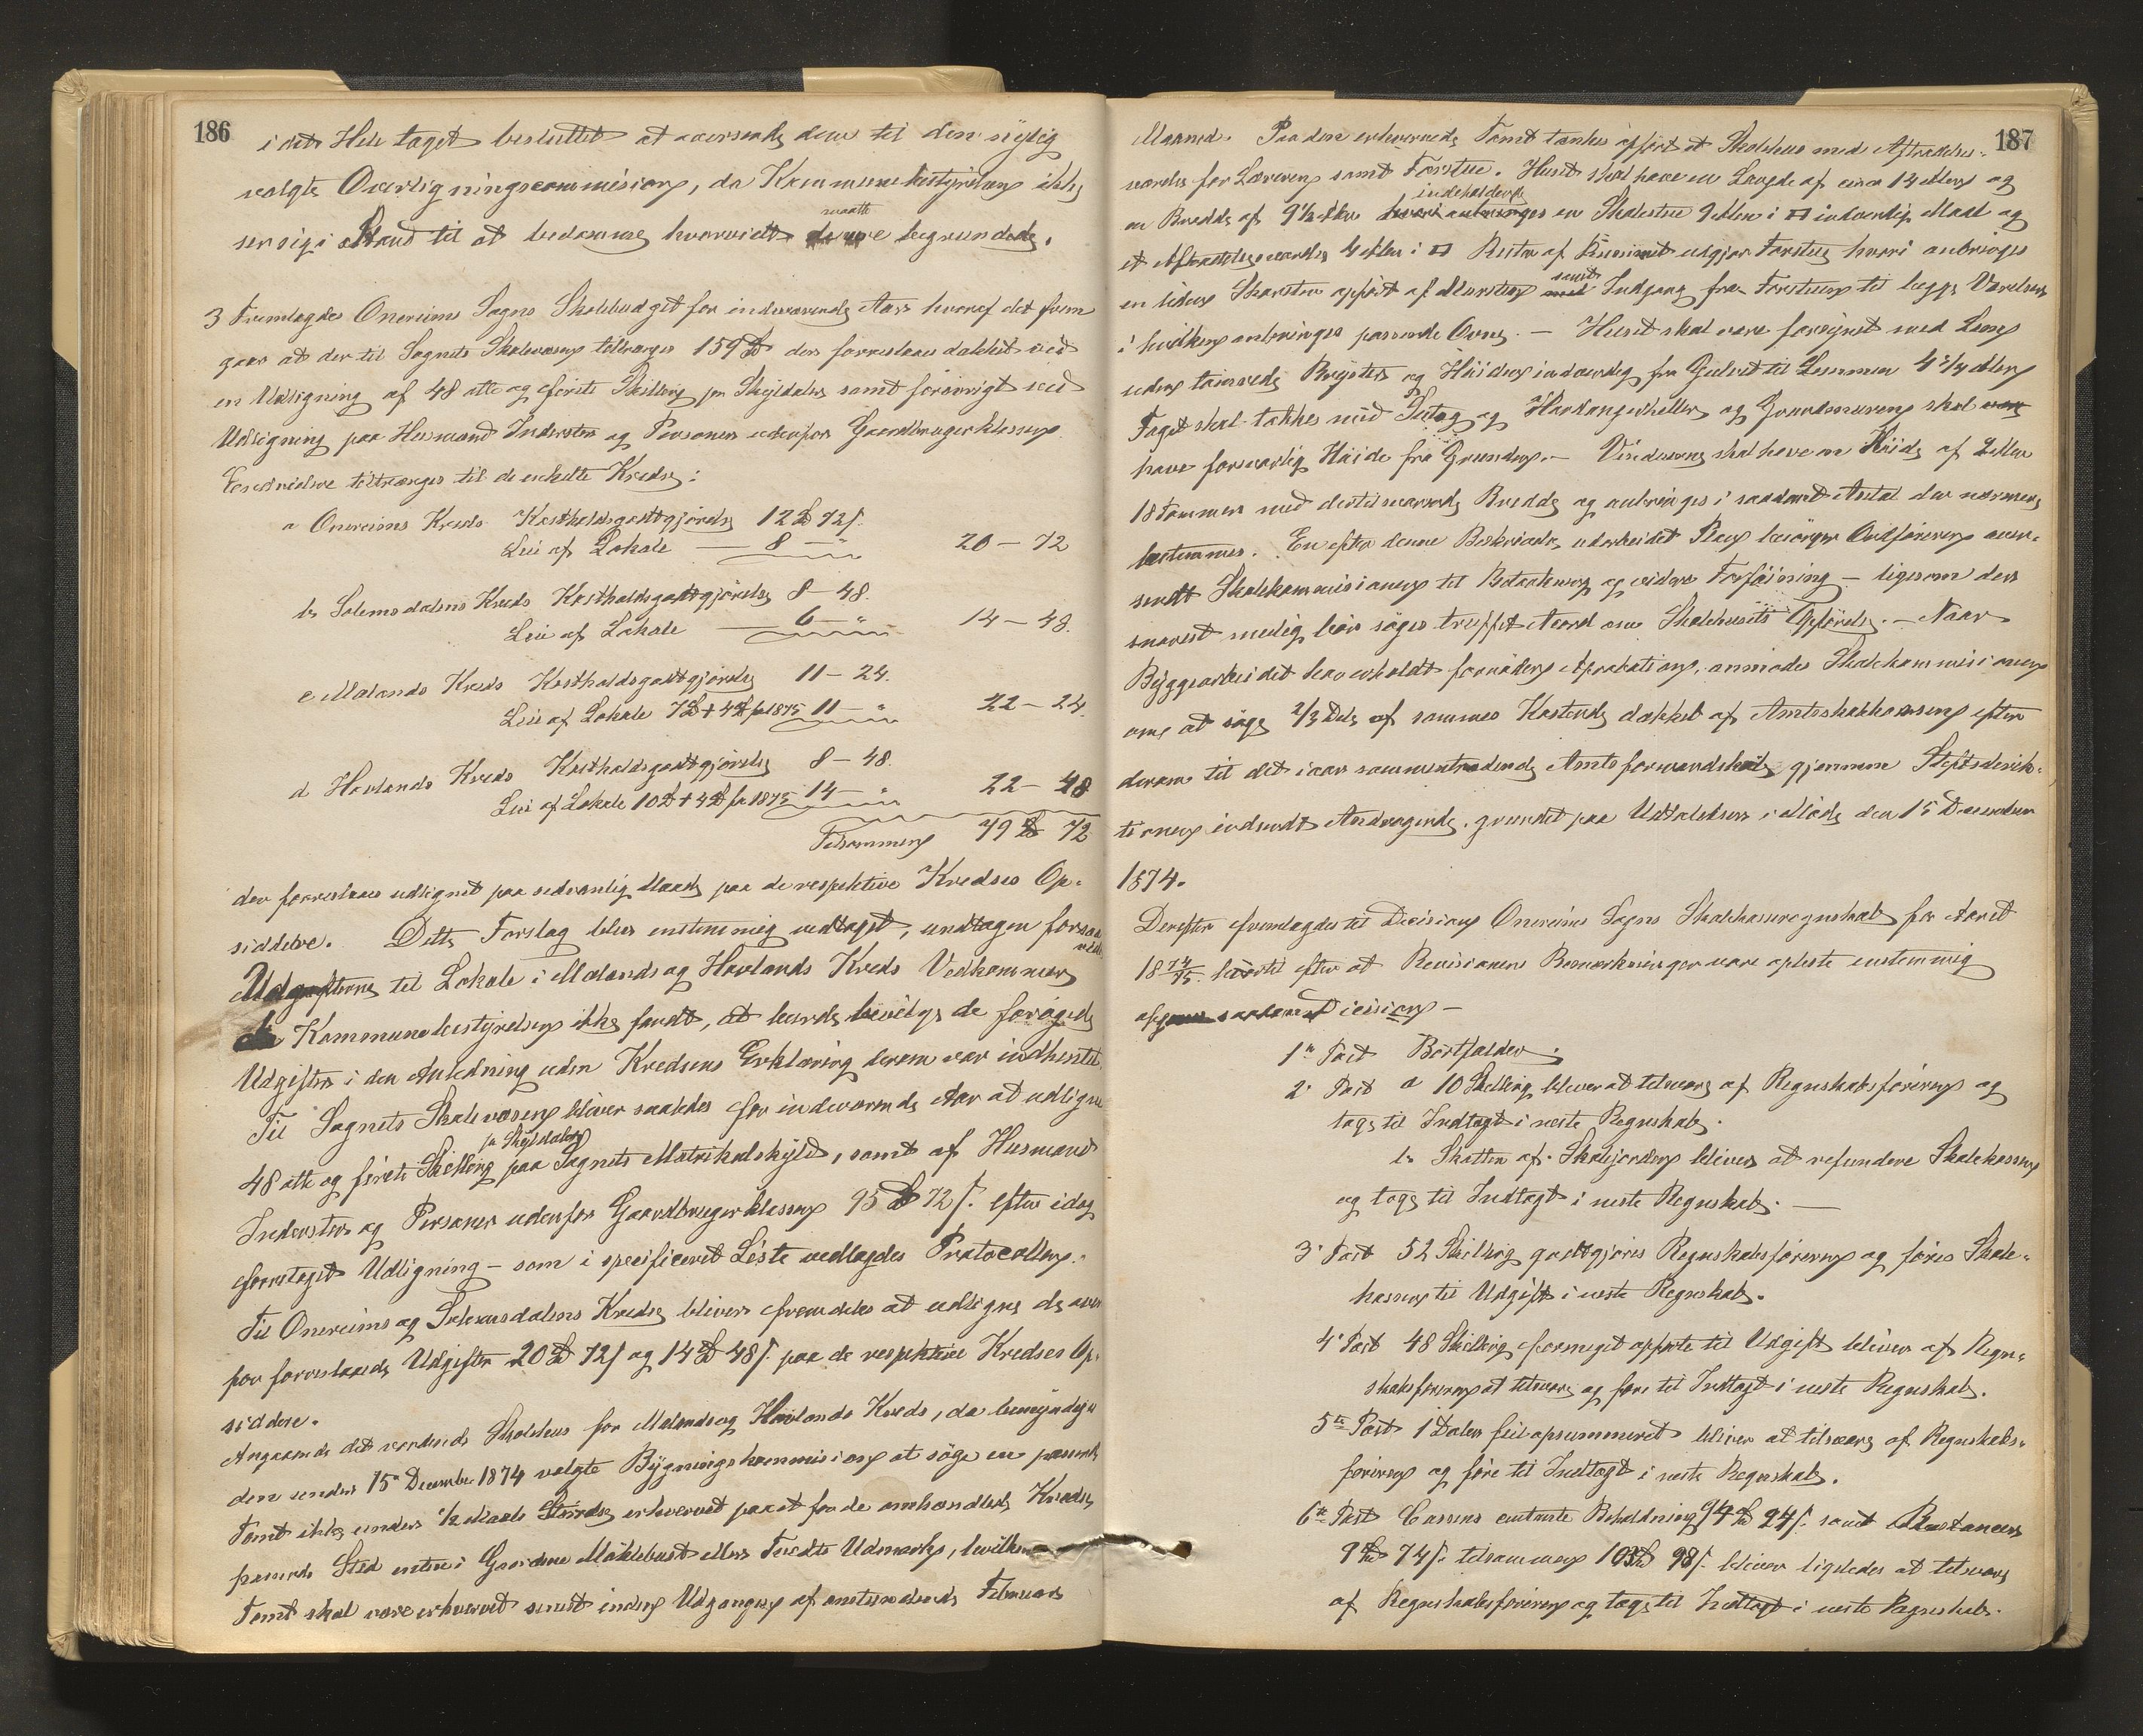 186
i det Hele taget besluttet at oversende dem til den nylig
valgte Overligningscommission, da Kommunebestyrelsen ikke
ser sig i Stand til at bedømme hvorvidt maatte være begrundede.
3 Fremlagdes Onereims Sogns Skolebudget for indeværende Aar hvoraf det frem
gaar at der til Sognets Skolevæsen tiltrænges 159 Spd der forestaaes dækket ved
en Udligning af 48 otte og førti Skilling pr Skylddaler samt forøvrigt ved
Udligning paa Husmænd Inderster og Personer udenfor Gaardbrugerklassen
Esendvidere tiltrænges til de enkelte Kredse:
a Onereims Kreds Kostholdsgodtgjørelse 12 Spd 72 s.
Leie af Lokale — 8 — " 20 — 72
b Solemsdalens Kreds Kostholdsgodtgjørelse 8 — 48.
Leie af Lokale — 6 — " 14 — 48.
c Malands Kreds Kostholdsgodtgjørelse 11 — 24.
Leie af Lokale 7 Spd + 4 Spd for 1875 11 — " 22 — 24.
d Havlands Kreds Kostholdsgodtgjørelse 8 — 48.
Leie af Lokale 10 Spd + 4 Spd for 1875 14 — " 22 — 48
Tilsammen 79 Spd 72
der forestaaes udlignet paa sedvanlig Maade paa de respektive Kredses Op-
siddere. Dette Forslag blev enstemmig vedtaget, undtagen forsaa
vidt
Udgifterne til Lokale i Malands og Havlands Kreds Vedkommer
da Kommunebestyrelsen ikke fandt, at burde bevilge de forøgede
Udgifter i den Anledning uden Kredsens Erklæring derom var indhentet.
Til Sognets Skolevæsen bliver saaledes for indeværende Aar at udligne
pr Skylddaler
48 otte og førti Skilling paa Sognets Matrikulskyld, samt af Husmænd
Inderster og Personer udenfor Gaardbrugerklassen 95 Spd 72 s. efter idag
foretaget Udligning – som i specificeret Liste vedlagdes Protocollen.
Til Onereims og Solemsdalens Kredse bliver fremdeles at udligne de oven
for forestaaede Udgifter 20 Spd 72 s og 14 Spd 48 s. paa de respektive Kredses Op-
siddere.
Angaaende det vordende Skolehus for Malands og Havlands Kreds, da bemyndiges
den under 15de December 1874 valgte Bygningskommission at søge en passende
Tomt ikke under ½ Maals Størrelse erhvervet paa et for de omhandlede Kredse
passende Sted enten i Gaardene Møklebust eller Tvedts Udmark, hvilken
Tomt skal være erhvervet senest inden Udgangen af anstundende Februar
187
Maaned. Paa den erhvervede Tomt tænkes opført et Skolehus med Aftrædelses-
værelse for Læreren samt Forstue. Huset skal have en Længde af circa 14 Alen og
indeholdende
en Bredde af 9½ Alen hvori anbringes en Skolestue 9 Alen i □ indvendig Maal og
et Aftrædelsesværelse 4 Alen i □ Resten af Rummet udgjør Forstue hvori anbringes
samt
en liden Skorsten opført af Mursten med Indgang fra Forstuen til begge Værelser
i hvilken anbringes passende Ovne. — Huset skal være forsynet med Lem
uden tømrede Brøster og Høiden indvendig fra Gulvet til Lemmen 4¼ Alen
Taget skal tækkes med Sutag og Hardangerheller og Grundmuren skal
have forsvarlig Høide fra Grunden. — Vinduerne skal have en Høide af 2 Alen
18 Tommer med dertilsvarende Bredde og anbringes i saadant Antal der nærmere
bestemmes. En efter denne Beskrivelse udarbeidet Plan besørger Ordføreren over-
sendt Skolekommissionen til Betænkning og videre Forføining – ligesom der
snarest muelig bør søges truffet Akord om Skolehusets Opførelse. — Naar
Byggearbeidet har erholdt fornøden Aprobation, anmodes Skolekommissionen
om at søge 2/3 Dele af sammes Kostende dækket af Amtsskolekassen efter
derom til det iaar sammentrædende Amtsformandskab gjennem Stiftsdirek-
tionen indsendt Andragende, grundet paa Udtalelsen i Møde den 15 December
1874.
Derefter fremlagdes til Decision Onereims Sogns Skolekasseregnskab for Aaret
18 74/75. hvortil efter at Revisionens Bemærkninger vare oplæste enstemmig
Decision —
1ste Post Bortfalder.
2. Post a 10 Skilling bliver at tilsvare af Regnskabsføreren og
tage til Indtægt i næste Regnskab.
b Skatten af Skolejorden bliver at refundere Skolekassen
og tage til Indtægt i næste Regnskab. —
3. Post 52 Skilling godtgjøres Regnskabsføreren og føres Skole-
kassen til Udgift i næste Regnskab.
4. Post 48 Skilling formeget opførte til Udgift bliver af Regn-
skabsføreren at tilsvare og føre til Indtægt i næste Regnskab.
5te Post 1 Daler feilopsummeret bliver at tilsvare af Regnskabs-
føreren og føre til Indtægt i næste Regnskab.
6te Post Cassens contante Beholdning 94 Spd 24 s. samt Restancer
9 Spd 74 s. tilsammen 103 Spd 98 s. bliver ligeledes at tilsvare
af Regnskabsføreren og tage til Indtægt i næste Regnskab.